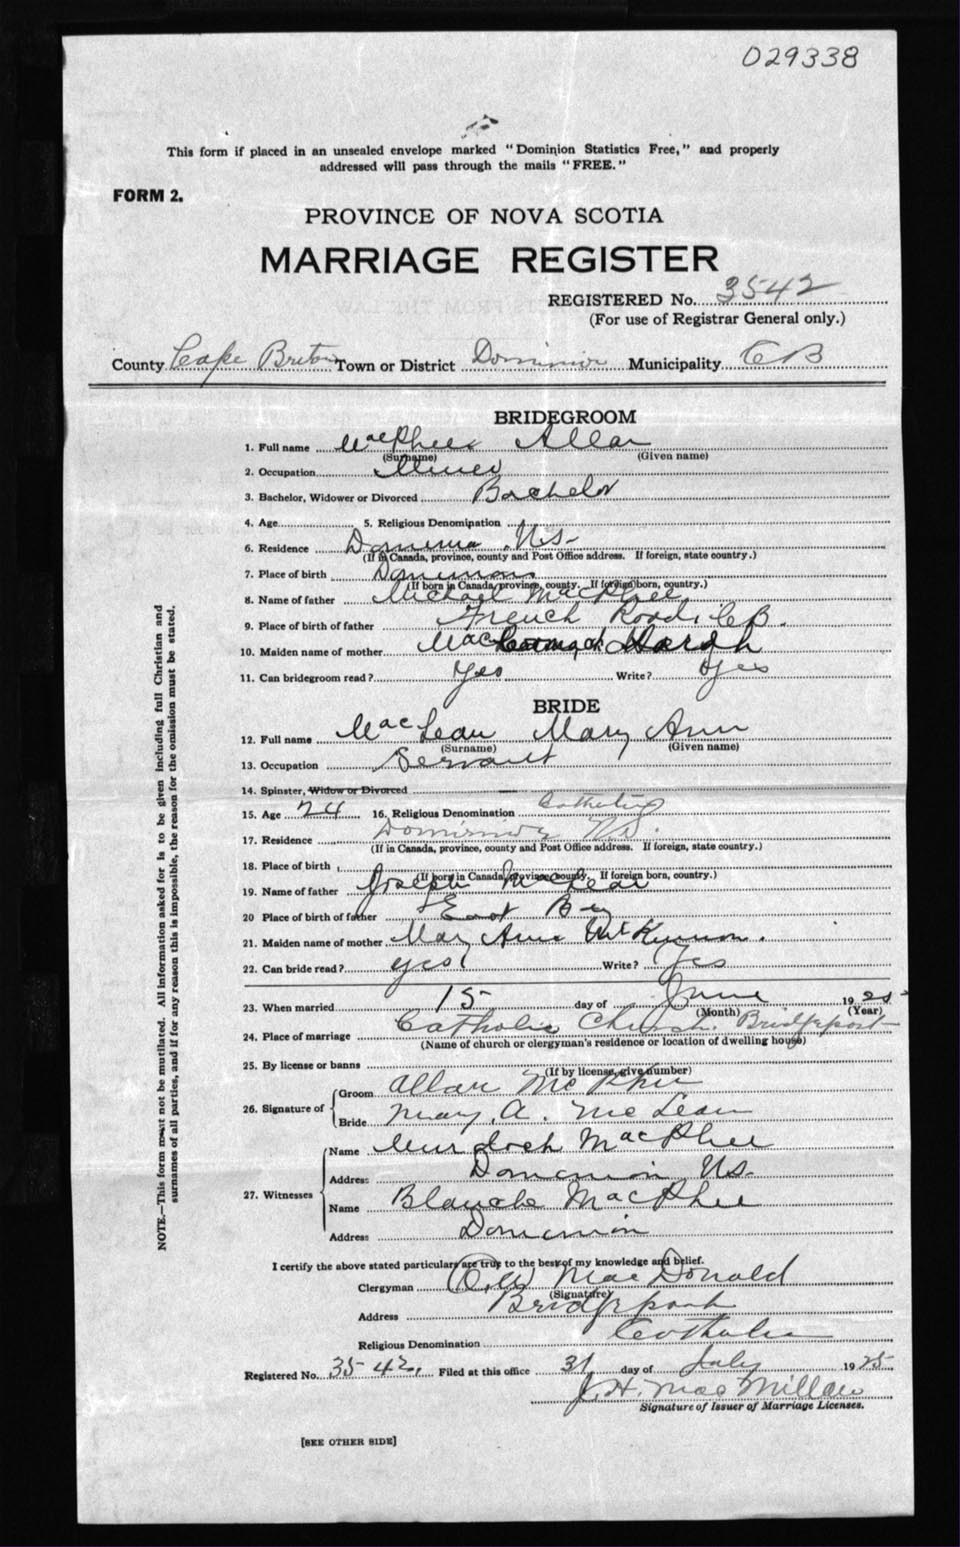 029338
This form if placed in an unsealed envelope marked "Dominion Statistics Free," and properly
addressed will pass through the mails "FREE."
FORM 2.
PROVINCE OF NOVA SCOTIA
MARRIAGE REGISTER
REGISTERED No. 3542
(For use of Registrar General only.)
County Cape Breton Town or District Dominion Municipality CB
BRIDEGROOM
1. Full name MacPhee Allan
(Surname) (Given name)
2. Occupation Miner
3. Bachelor, Widower or Divorced Bachelor
4. Age 5. Religious Denomination
6. Residence Dominion N.S.
(If in Canada, province, county and Post Office address. If foreign, state country.)
7. Place of birth Dominion
(If born in Canada, province, county. If foreign born, country.)
8. Name of father Michael MacPhee
9. Place of birth of father French Road, C.B.
10. Maiden name of mother Mac Sarah
11. Can bridegroom read? Yes Write? Yes
BRIDE
12. Full name MacLean Mary Ann
(Surname) (Given name)
13. Occupation Servant
14. Spinster, Widow or Divorced
15. Age 24 16. Religious Denomination Catholic
17. Residence Dominion N.S.
(If in Canada, province, county and Post Office address. If foreign, state country.)
18. Place of birth
(If born in Canada, province, county. If foreign born, country.)
19. Name of father Joseph McLean
20 Place of birth of father East Bay
21. Maiden name of mother Mary Ann McKinnon.
22. Can bride read? yes Write? Yes
23. When married 15 day of June 1925
(Month) (Year)
24. Place of marriage Catholic Church. Bridgeport
(Name of church or clergyman's residence or location of dwelling house)
25. By license or banns
(If by license, give number)
26. Signature of Groom Allan McPhee
Bride Mary A. McLean
27. Witnesses Name Murdoch MacPhee
Address Dominion N.S.
Name Blanche MacPhee
Address Dominion
I certify the above stated particulars are true to the best of my knowledge and belief.
Clergyman MacDonald
(Signature)
Address Bridgeport
Religious Denomination Catholic
Registered No. 3542. Filed at this office 31 day of July 1925.
J. H. MacMillan
Signature of Issuer of Marriage Licenses.
[SEE OTHER SIDE]
NOTE.—This form must not be mutilated. All information asked for is to be given including full Christian and
surnames of all parties, and if for any reason this is impossible, the reason for the omission must be stated.